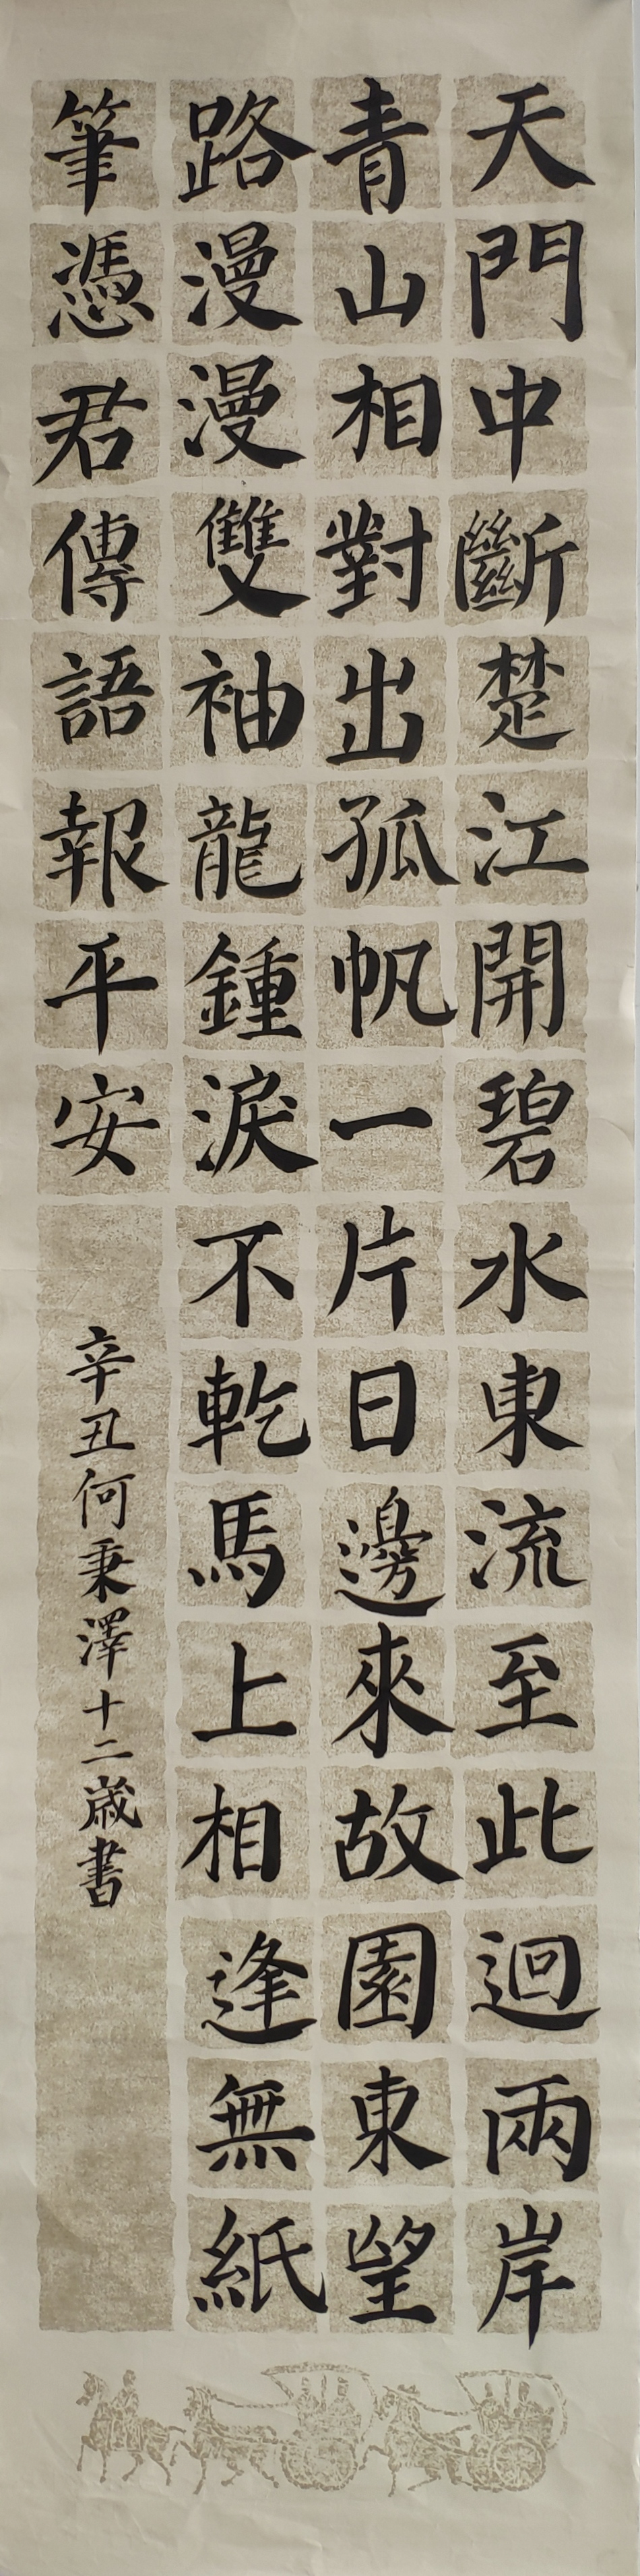 天門中斷楚江開碧水東流至此迴兩岸
青山相對出孤帆一片日邊來故園東望
路漫漫雙袖龍鍾淚不乾馬上相逢無紙
筆憑君傳語報平安
辛丑何秉澤十二歲書